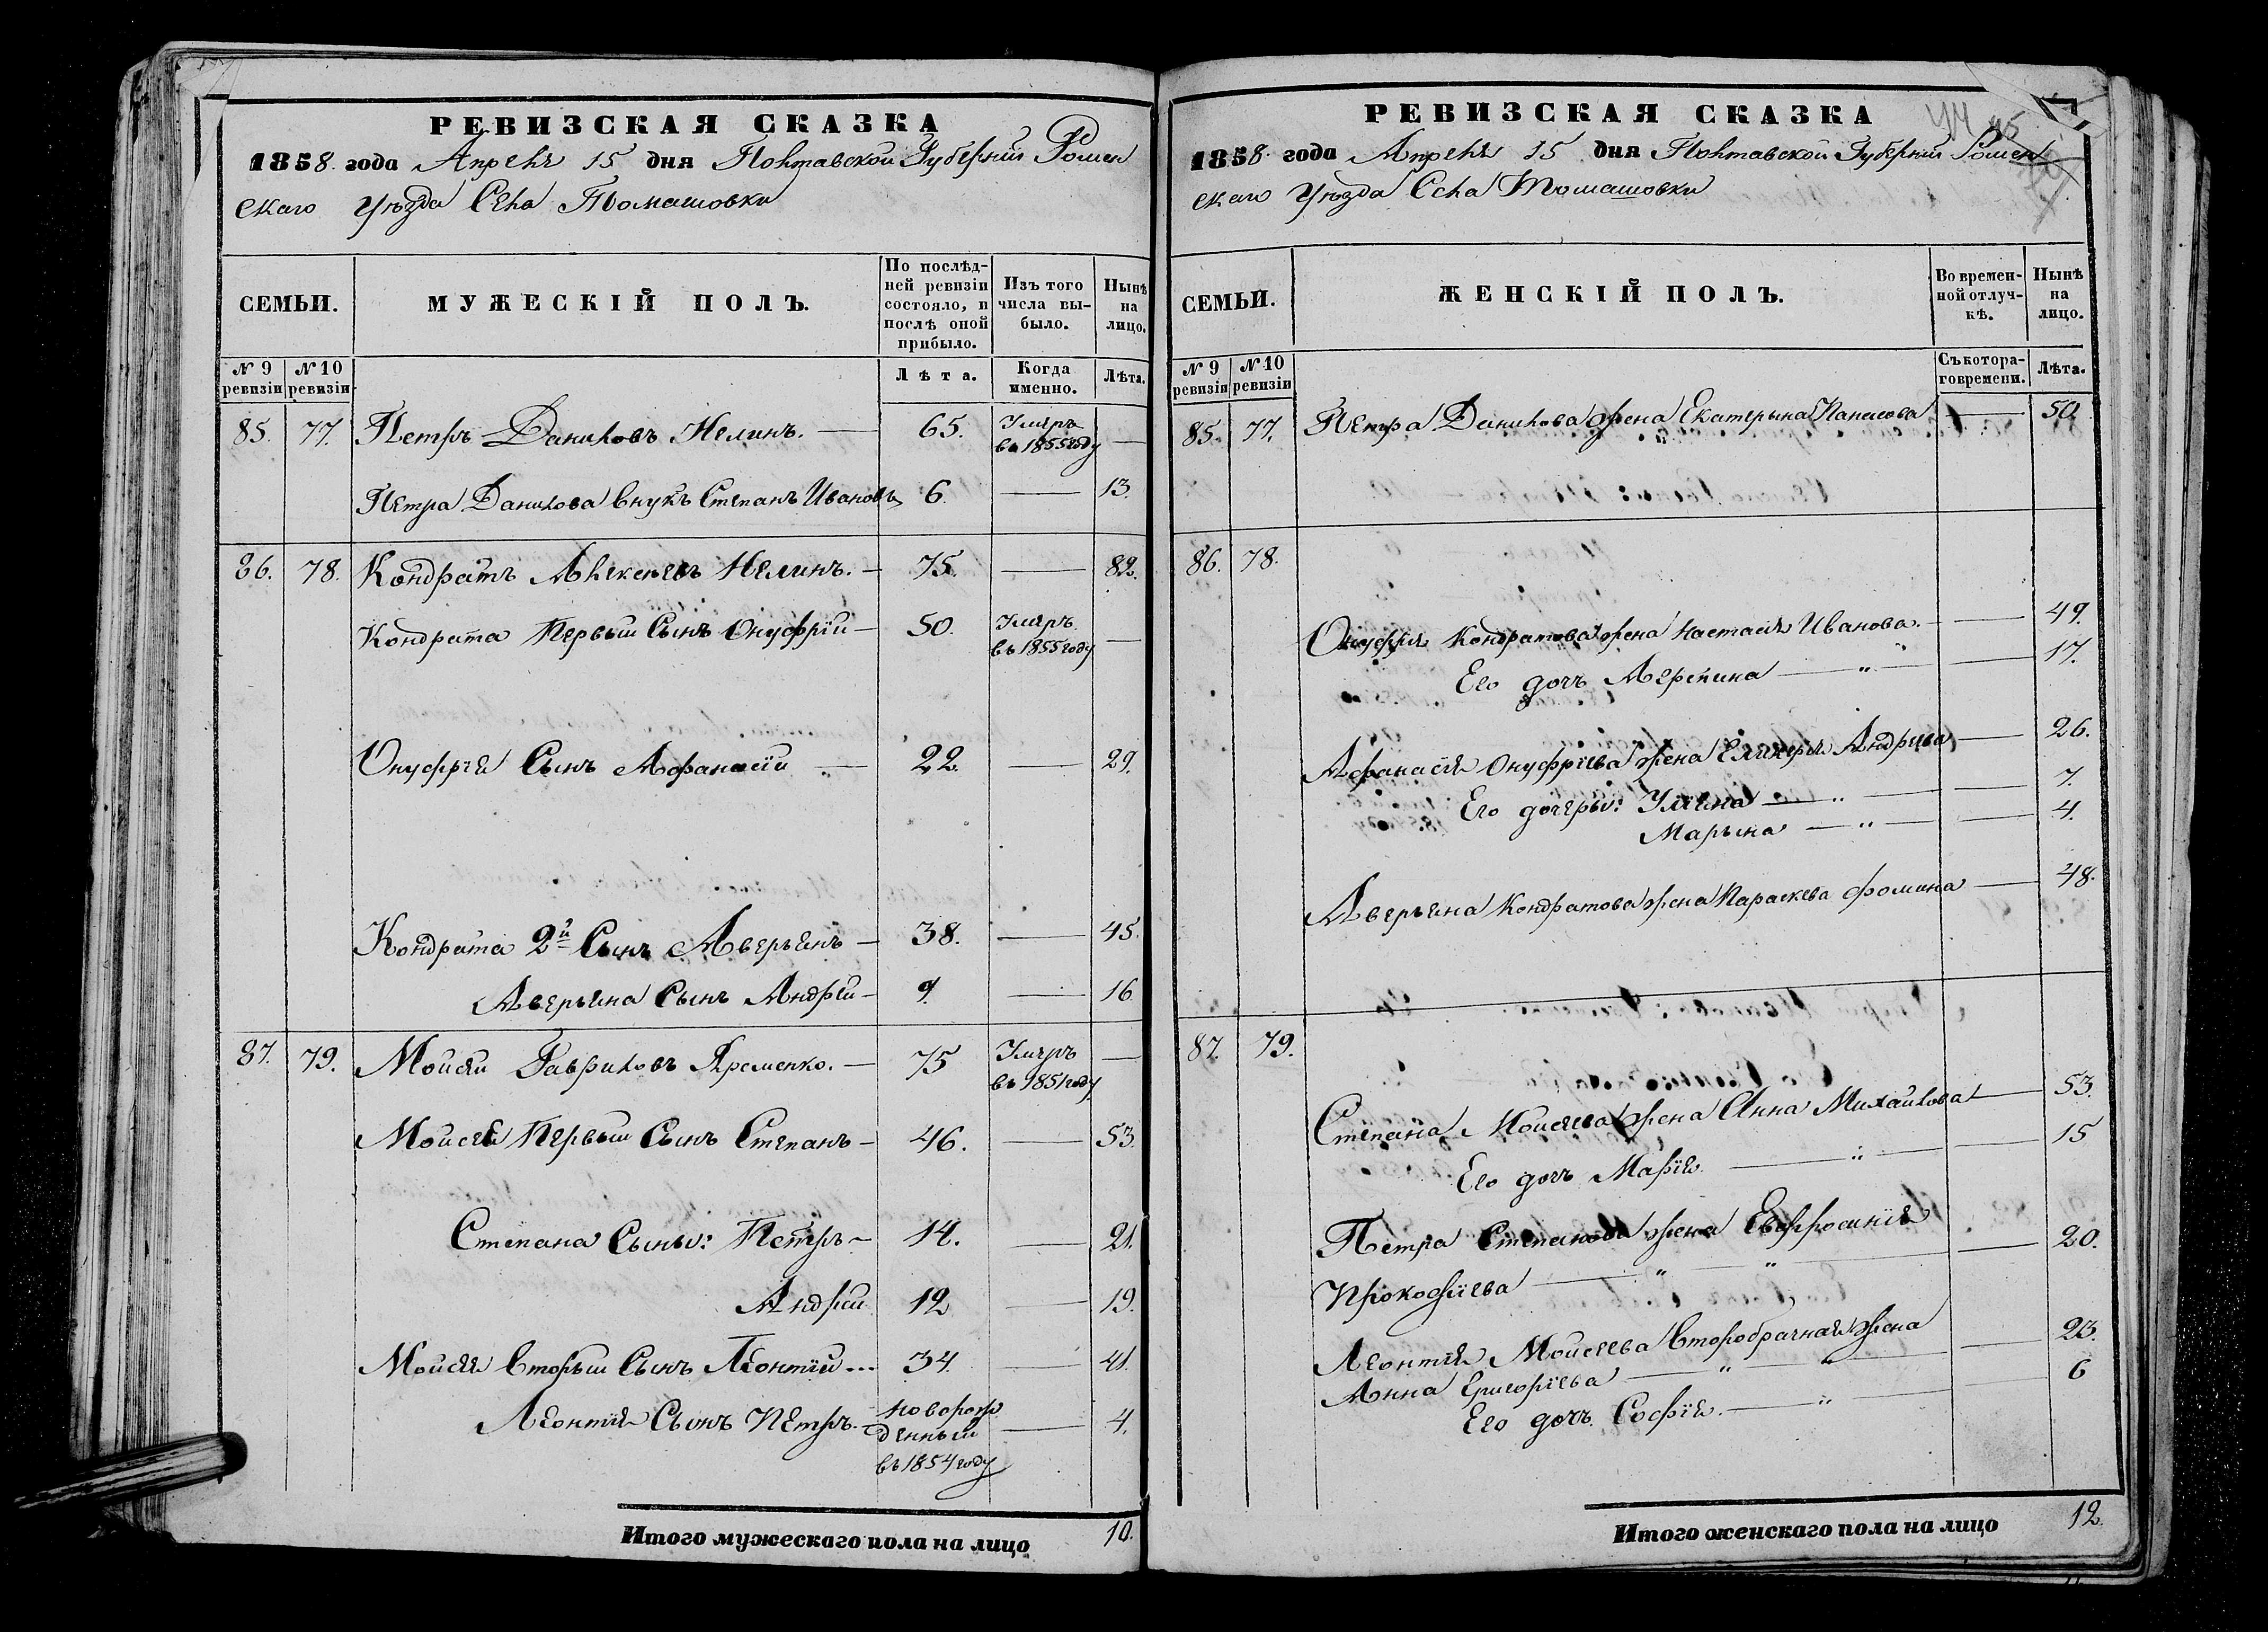 РЕВИЗСКАЯ СКАЗКА
1858. года Апреля 15 дня Полтавской Губернии Ромен
скаго Уѣзда Села Томашовки
СЕМЬИ.
МУЖЕСКІЙ ПОЛЪ.
По послѣд-
ней ревизіи
состояло, и
послѣ оной
прибыло.
Изъ того
числа вы-
было.
Нынѣ
на
лицо.
№ 9
ревизіи
№ 10
ревизіи
Лѣта.
Когда
именно.
Лѣта.
85. 77. Петръ Даниловъ Нелинъ. — 65. Умеръ —
въ 1855 году
Петра Данилова внукъ Степанъ Ивановъ 6. — 13.
86. 78. Кондратъ Алексѣевъ Нелинъ. — 75. — 82.
Кондрата Первый Сынъ Онуфрій — 50. Умеръ —
въ 1855 году
Онуфрія Сынъ Афанасій „ — 22. — 29.
Кондрата 2й Сынъ Аверьянъ — 38. — 45.
Аверьяна Сынъ Андрей — 9. — 16.
87. 79. Моисей Гавриловъ Яременко. — 75 Умеръ —
въ 1851 году
Моисея Первый Сынъ Степанъ — 46. — 53.
Степана Сыны: Петръ — 14. — 21.
Андрей 12 — 19.
Моисея Вторый Сынъ Леонтій ... 34. — 41.
Леонтія Сынъ Петръ. — новорож — 4.
денный
въ 1854 году
Итого мужескаго пола на лицо 10.
РЕВИЗСКАЯ СКАЗКА
44 45
1858. года Апреля 15 дня Полтавской Губерніи Ромен
скаго Уѣзда Села Томашовки
СЕМЬИ.
ЖЕНСКІЙ ПОЛЪ.
Во времен-
ной отлуч-
кѣ.
Нынѣ
на
лицо.
№ 9
ревизіи
№ 10
ревизіи
Съ котора-
го времени.
Лѣта.
85. 77. Петра Данилова жена Екатерина Панасова — 50.
86. 78.
Онуфрія Кондратова жена Настасія Иванова. — 49.
Его дочь Агрепина — „ — 17.
Афанасія Онуфріева жена Гликерія Андреева — 26.
Его дочери: Уліяна — „ — 7.
Марьяна — „ — 4.
Аверьяна Кондратова жена Параскева Фомина — 48.
87. 79.
Степана Моисеева жена Анна Михайлова — 53.
Его дочь Марія — „ — 15
Петра Степанова жена Евфросинія
Прокофіева — „ — „ — 20.
Леонтія Моисеева Второбрачная жена
Анна Григоріева — „ — „ — 23.
Его дочь Софія. — „ — 6
Итого женскаго пола на лицо 12.